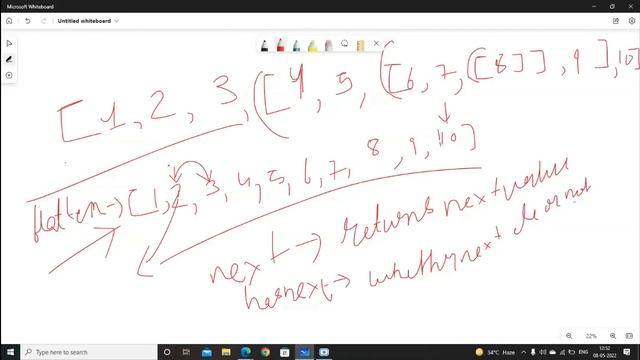 Microsoft Whiteboard
Untitled whiteboard
[1, 2, 3, [4, 5, [6, 7, [8]], 9], 10]
flatten → [1, 2, 3, 4, 5, 6, 7, 8, 9, 10]
next → returns next value
hasnext → whether next or not
22%
Type here to search
34°C Haze
12:52
08-05-2022